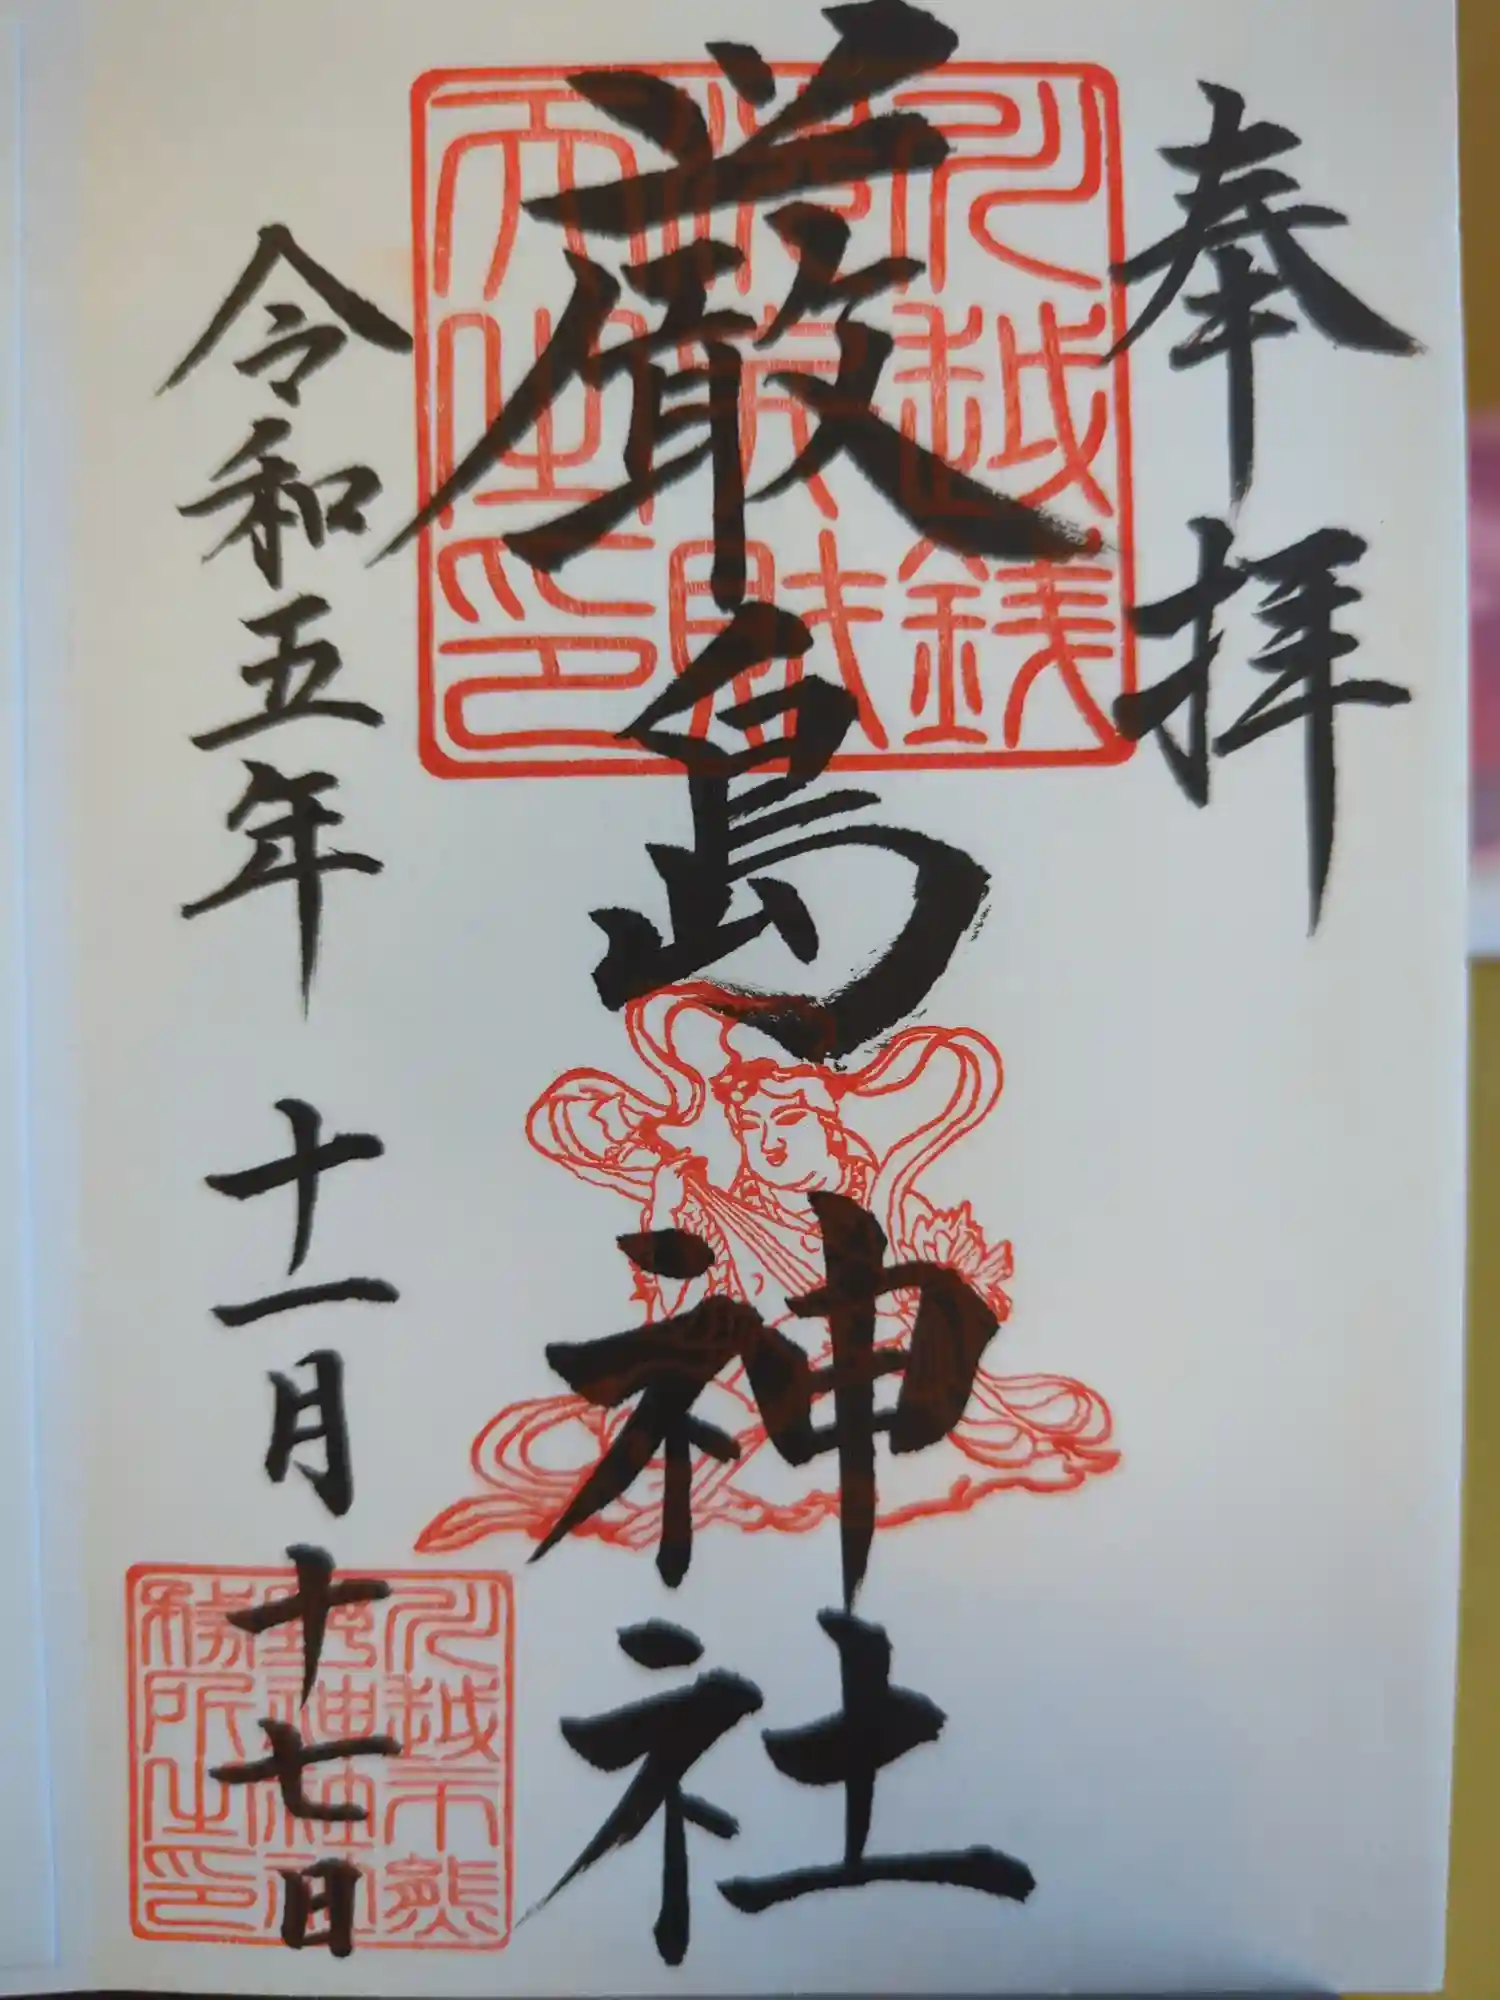 奉拝
厳島神社
令和五年 十一月十七日
川越銭
洗弁財
天之印
川越市熊
野神社社
務所之印